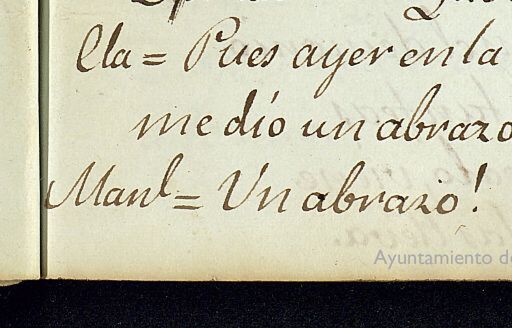 Cla = Pues ayer en la
me dio un abrazo
Manl = Un abrazo!
Ayuntamiento de